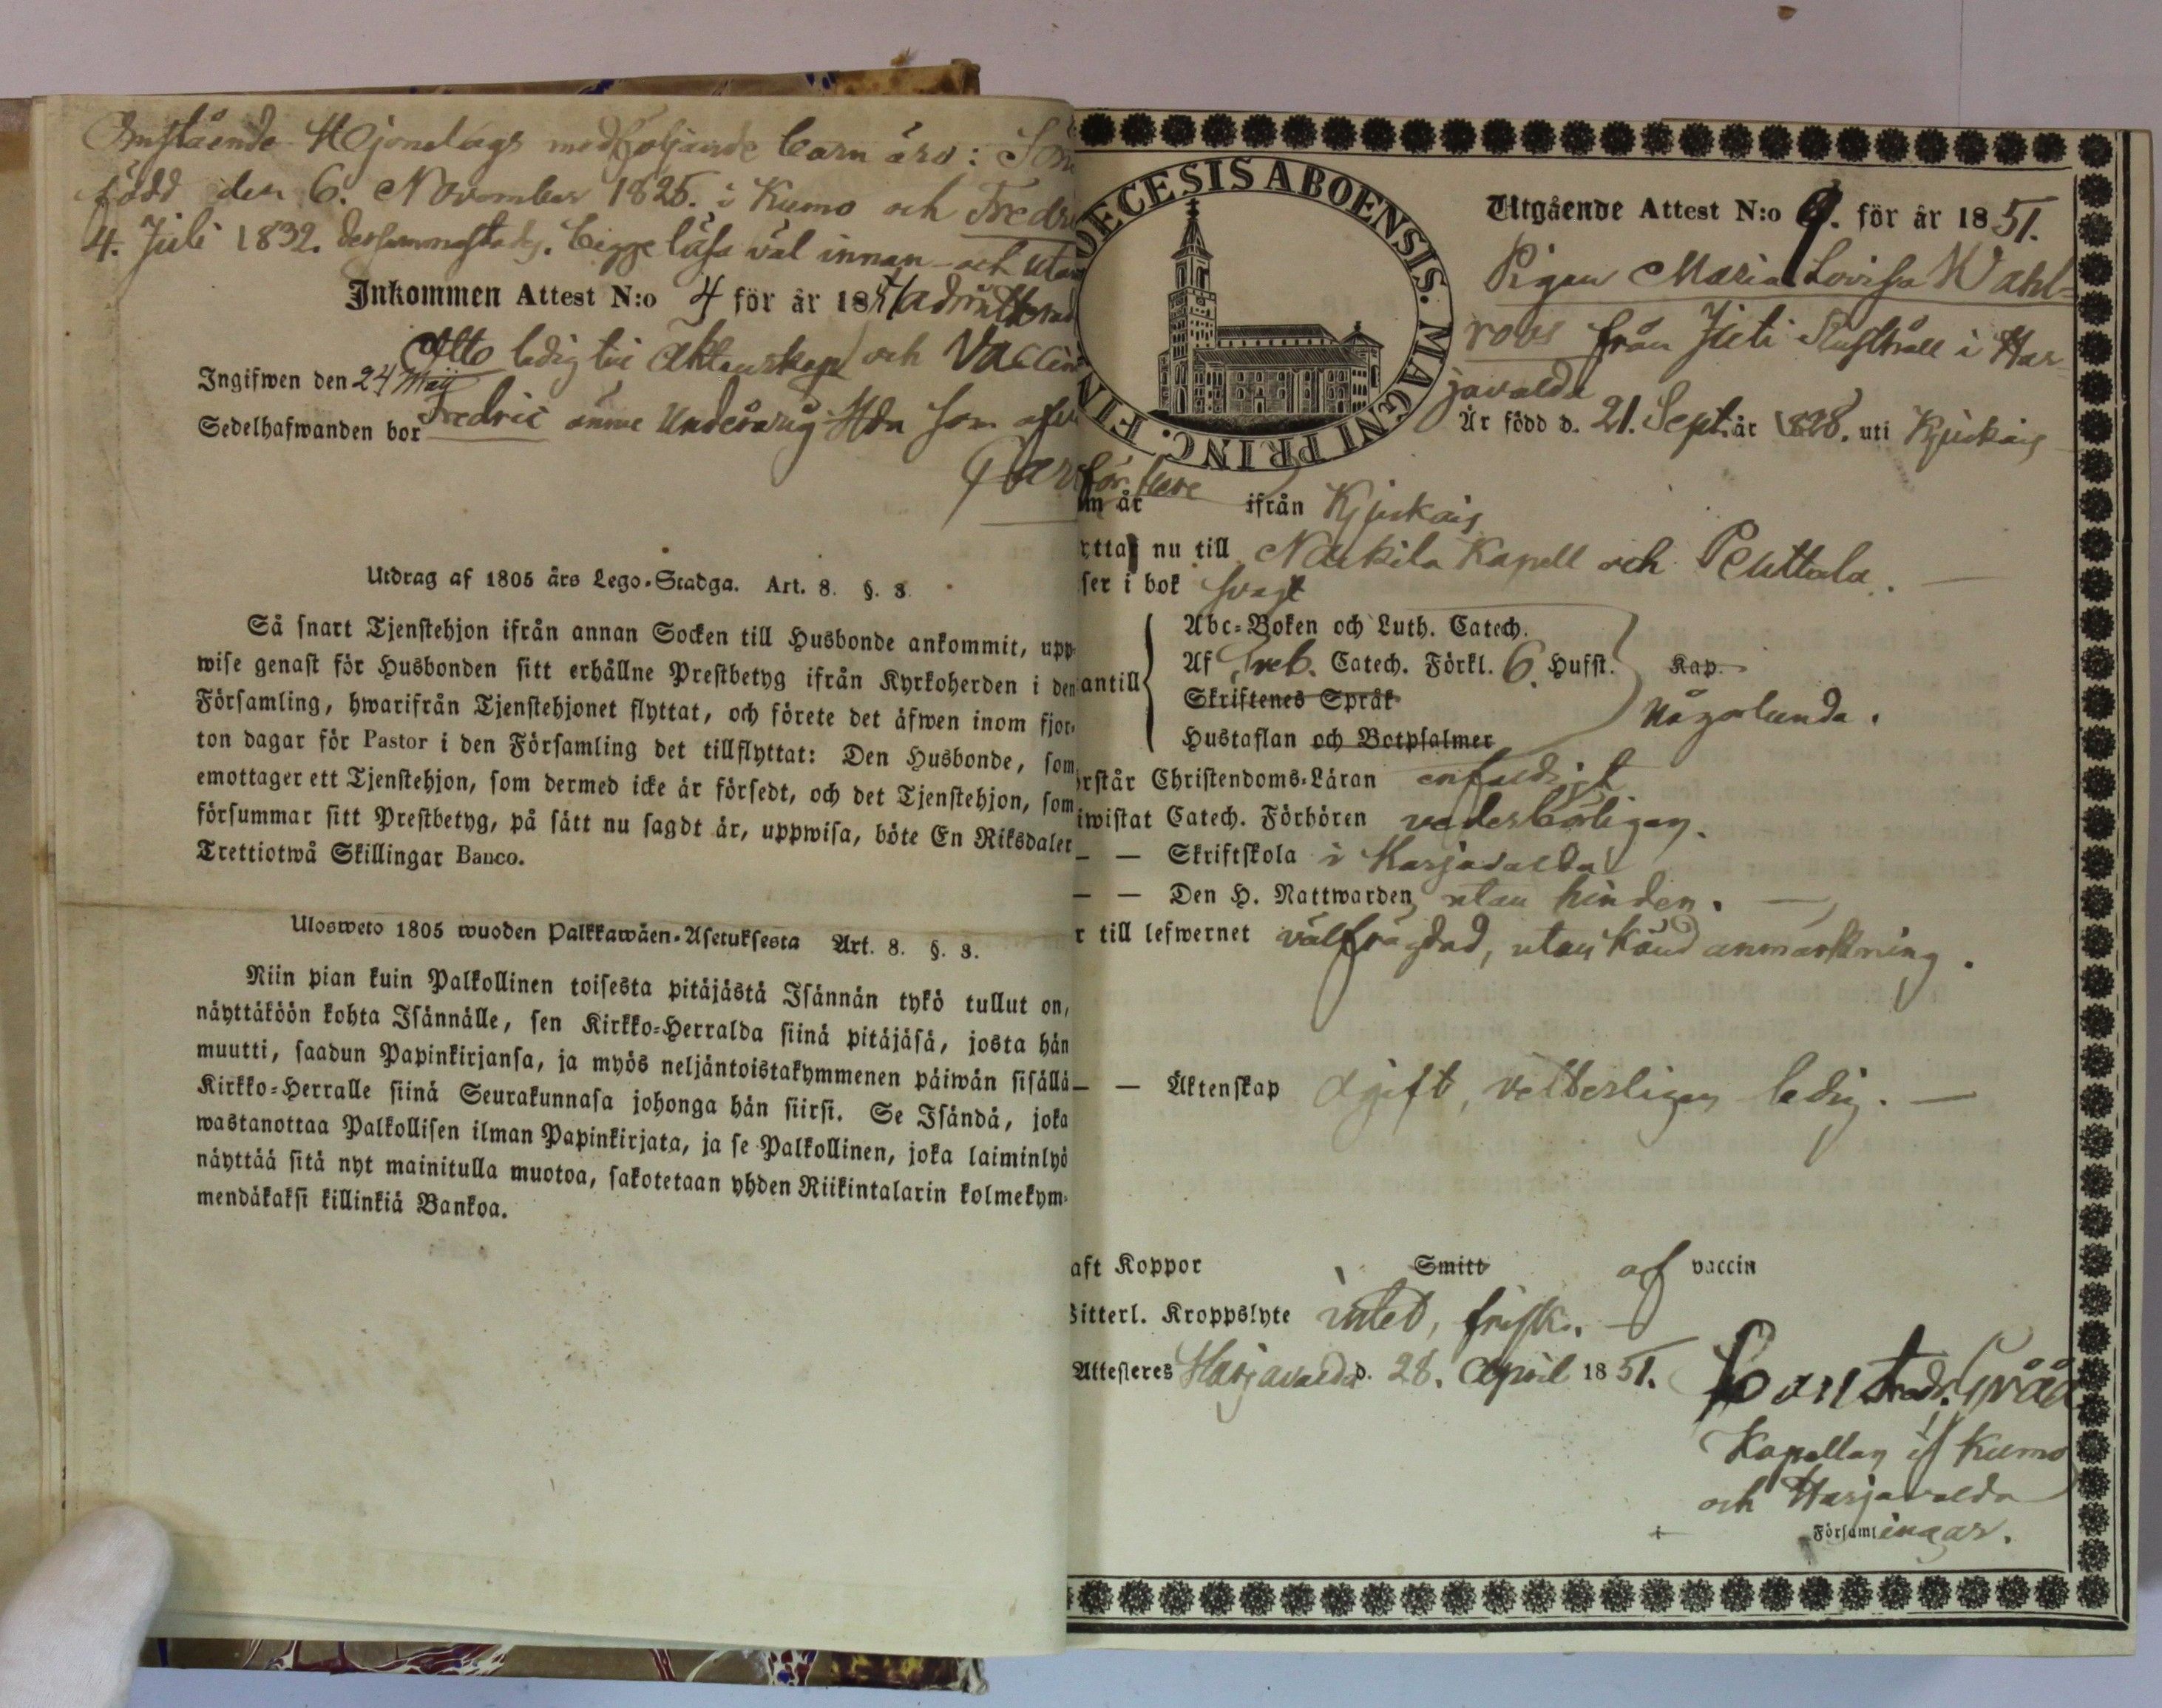 Omstående Hjonelags medföljande barn äro: S
född den 6. November 1825. i Kumo och Fredr
4. Juli 1832. dersammastädes. begge läsa väl innan- och utan
Inkommen Attest N:o 4 för år 1851
Otto ledig till äktenskap och Vaccin
Ingifwen den 24 Maij
Sedelhafwanden bor Fredric ännu Underårig som
Utdrag af 1805 års Lego-Stadga. Art. 8. §. 3.
Så snart Tjenstehjon ifrån annan Socken till Husbonde ankommit, upp-
wise genast för Husbonden sitt erhållne Prestbetyg ifrån Kyrkoherden i den
Församling, hwarifrån Tjenstehjonet flyttat, och förete det äfwen inom fjor-
ton dagar för Pastor i den Församling det tillflyttat: Den Husbonde, som
emottager ett Tjenstehjon, som dermed icke är försedt, och det Tjenstehjon, som
försummar sitt Prestbetyg, på sätt nu sagdt är, uppwisa, böte En Riksdaler
Trettiotwå Skillingar Banco.
Ulosweto 1805 wuoden Palkkawäen-Asetuksesta Art. 8. §. 3.
Niin pian kuin Palkollinen toisesta pitäjästä Isännän tykö tullut on,
näyttäköön kohta Isännälle, sen Kirkko-Herralda siinä pitäjäsä, josta hän
muutti, saadun Papinkirjansa, ja myös neljäntoistakymmenen päiwän sisällä
Kirkko-Herralle siinä Seurakunnasa johonga hän siirsi. Se Isändä, joka
wastanottaa Palkollisen ilman Papinkirjata, ja se Palkollinen, joka laiminlyö
näyttää sitä nyt mainitulla muotoa, sakotetaan yhden Riikintalarin kolmekym-
mendäkaksi killinkiä Bankoa.
OECESIS ABOENSIS. MAGNI PRINC. FIN
Utgående Attest N:o 9. för år 1851.
Pigan Maria Lovisa Wahl-
roos från Juti Rusthåll i Har-
javalda
Är född d. 21. Sept. år 1828. uti Kjukais
för flere
m år ifrån Kjukais
yttar nu till Nackila Kapell och Penttala.
ser i bok svagt
antill
Abc-Boken och Luth. Catech.
Af Sveb. Catech. Förkl. 6. Hufst. Kap.
Skriftenes Språk
Hustaflan och Botpsalmer någorlunda.
rstår Christendoms-Läran enfaldigt
iwistat Catech. Förhören vederbörligen.
— — Skriftskola i Harjavalda
— — Den H. Nattwarden utan hinder. —
r till lefwernet välfrägdad, utan känd anmärkning.
— — Äktenskap ogift, veterligen ledig. —
aft Koppor Smitt af vaccin
Witterl. Kroppslyte intet, frisk. —
Attesteres Harjavalda d. 28. April 1851.
Kapellan i Kumo
och Harjavalda
Församlingar.